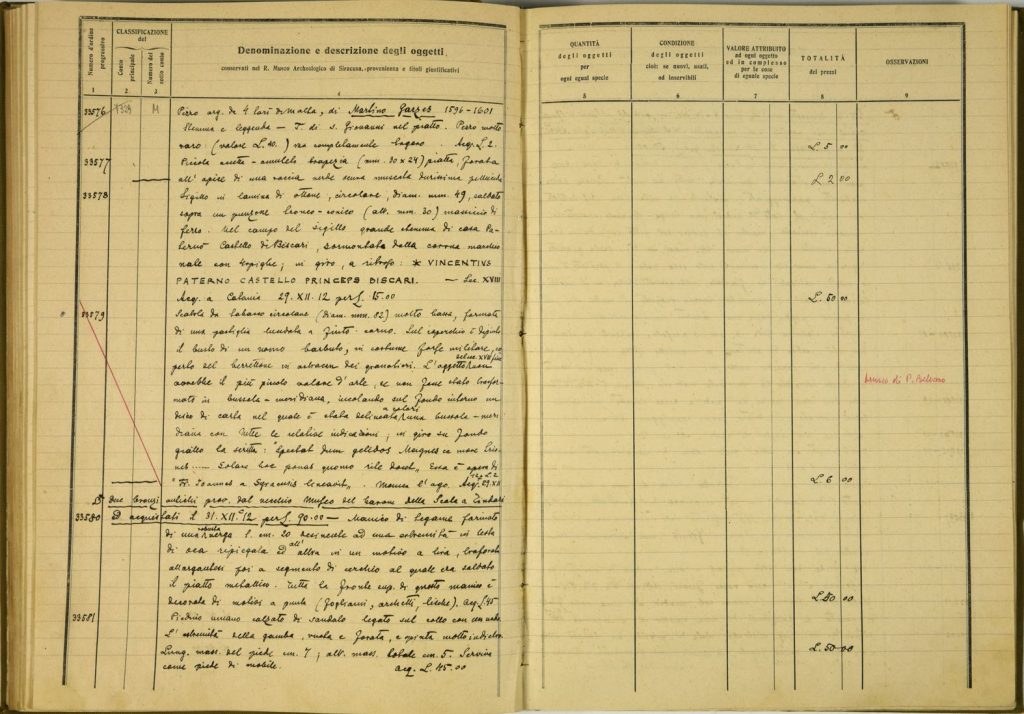 Numero d'ordine progressivo
CLASSIFICAZIONE del
Conto principale
Numero del sotto conto
Denominazione e descrizione degli oggetti
conservati nel R. Museo Archeologico di Siracusa, provenienza e titoli giustificativi
QUANTITÀ degli oggetti per ogni egual specie
CONDIZIONE degli oggetti cioè: se nuovi, usati, od inservibili
VALORE ATTRIBUITO ad ogni oggetto ed in complesso per le cose di eguale specie
TOTALITÀ dei prezzi
OSSERVAZIONI
1 2 3 4 5 6 7 8 9
33576 M Pezzo arg. da 4 tarì di Malta, di Martino Garzes 1596-1601
Stemma e leggenda — T. di S. Giovanni nel piatto. Pezzo molto
raro (valore L. 20.) ma completamente logoro. Acq. L. 2. L. 5 00
33577 Piccola amuleto trapezia (mm. 30 x 24) piatta, forata
all'apice di una roccia verde scura durissima pellucida L. 2 00
33578 Sigillo in lamina di ottone, circolare, diam. mm. 49, saldato
sopra un punzone tronco-conico (alt. mm. 30) massiccio di
ferro. Nel campo del sigillo grande stemma di casa Pa-
ternò Castello di Biscari, sormontata dalla corona marchio
nale con ; in giro, a ritroso: * VINCENTIVS
PATERNO CASTELLO PRINCEPS BISCARI. — Sec. XVIII
Acq. a Catania 29.XII.12 per L. 15.00 L. 50 00
33579 Scatola da tabacco circolare (diam. mm. 82) molto bassa, formata
di una pastiglia a finto corno. Sul coperchio è dipinto
il busto di un uomo barbuto, in costume forse militare, co
perto del berrettone in astracan dei granatieri. L'oggetto non
avrebbe il più piccolo valore d'arte, se non fosse stato trasfor
mato in bussola-meridiana, incollando sul fondo interno un
disco di carta nel quale è stata delineata a colori una bussola-meri
diana con tutte le relative indicazioni; in giro su fondo
giallo la scritta: "Spectat dum gelidos Magnes
Solare hoc rite docet„ Essa è opera di
"Fr. Joannes a Syracusis lineavit„. Manca l'ago. Acq. 29.XII L. 6 00
due bronzi antichi prov. dal vecchio Museo del barone della Scala a Tindari
33580 ed acquistati il 31.XII.12 per L. 90.00 — Manico di tegame formato
di una robusta verga l. cm. 20 desinente ad una estremità in testa
di oca ripiegata ed all'altra in un motivo a lira, traforato
allargantesi poi a segmento di cerchio al quale era saldato
il piatto metallico. Tutta la fronte sup. di questo manico è
decorata di motivi a punta (fogliami, archetti, lische). Acq. L. 45 L. 50 00
33581 Piedino umano calzato di sandalo legato sul collo con un nodo.
L'estremità della gamba, vuota e forata, è spinta molto indietro.
Lung. mass. del piede cm. 7; alt. mass. totale cm. 5. Serviva
come piede di mobile. Acq. L. 45.00 L. 50 00